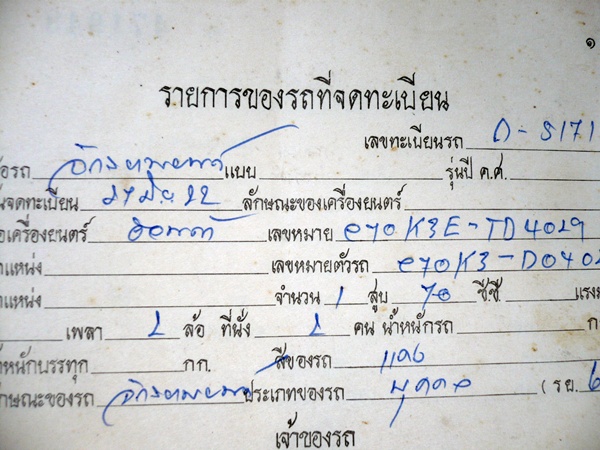 ๑
รายการของรถที่จดทะเบียน
เลขทะเบียนรถ ก-8171
อรถ จักรยานยนต์ แบบ รุ่นปี ค.ศ.
นจดทะเบียน 27 มิ.ย. 22 ลักษณะของเครื่องยนต์
อเครื่องยนต์ ฮอนด้า เลขหมาย C70K3E-TD4029
ำแหน่ง เลขหมายตัวรถ C70K3-D0402
ำแหน่ง จำนวน 1 สูบ 70 ซีซี แรง
เพลา 2 ล้อ ที่นั่ง 2 คน น้ำหนักรถ ก
ำหนักบรรทุก กก. สีของรถ แดง
ักษณะของรถ จักรยานยนต์ ประเภทของรถ บุคคล (รย. 6
เจ้าของรถ